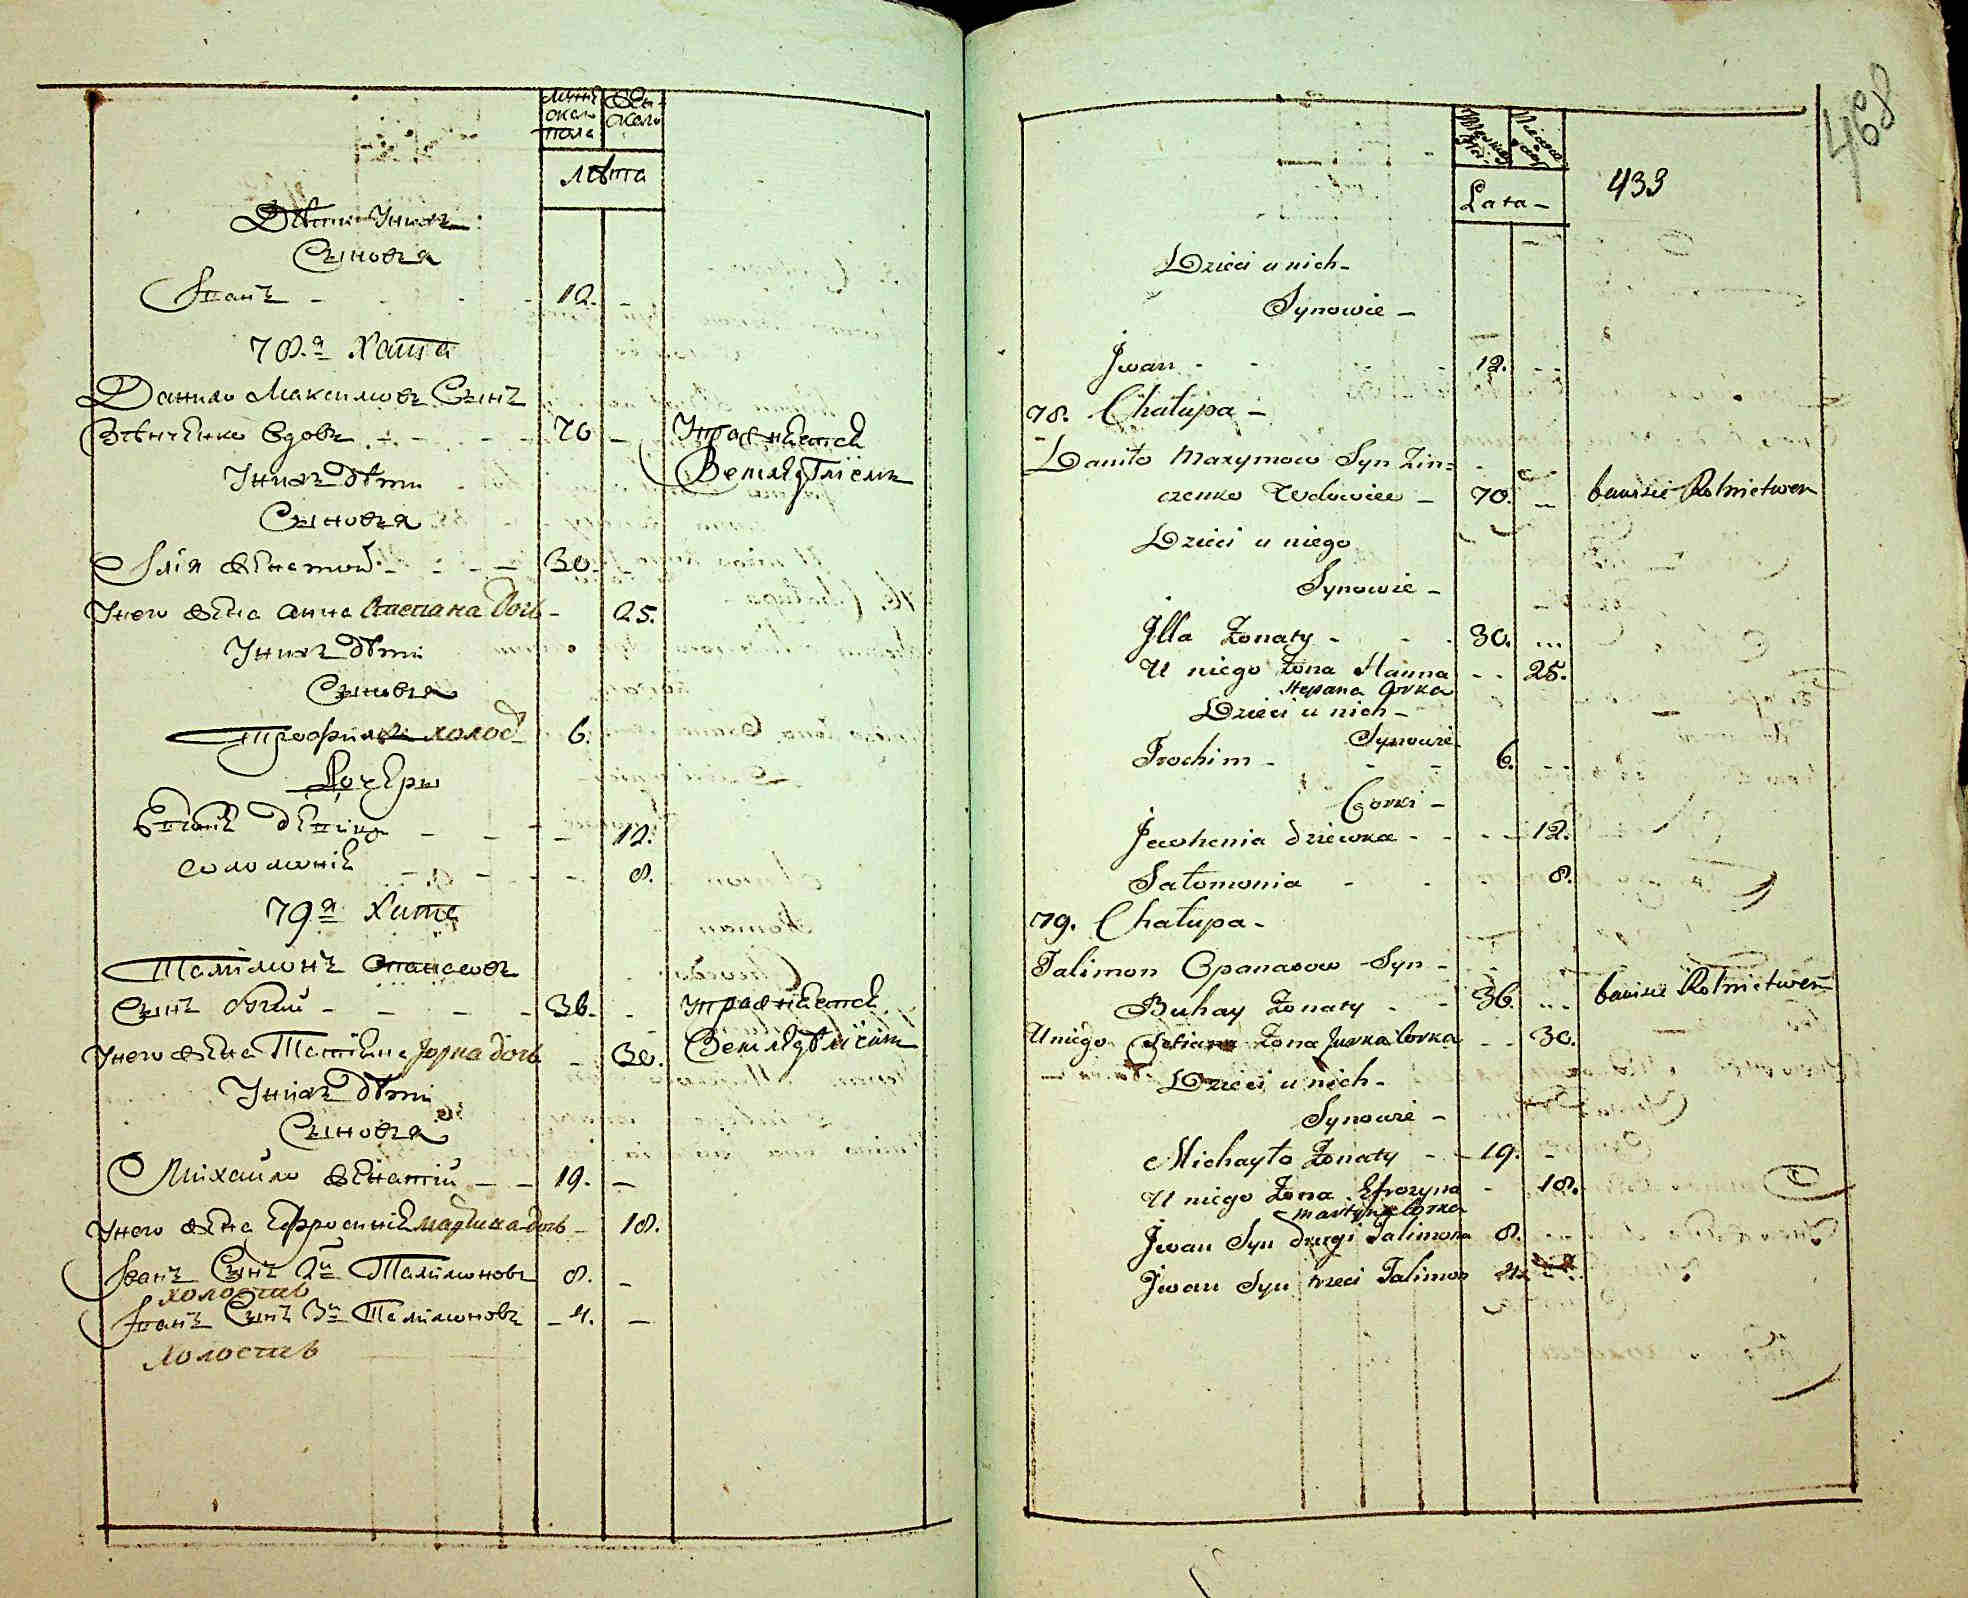 Мужеска пола
Женска
Лѣта
Дѣти у нихъ
Сыновья
Іванъ 12.
78.я Хата
Данило Максимовъ Сынъ
Зѣнченко вдовъ 70
Упражняется
Вземледѣліемъ
У нихъ дѣти
Сыновья
Ілія женатой 30.
У него жена Анна Степана дочь 25.
У нихъ дѣти
Сыновья
Трофимъ холост 6.
Дочери
девка 12.
Соломонія 8.
79я Хата
Талімонъ Опанасовъ
Сынъ Бугай 36.
Упражняется
Вземледѣліемъ
У него жена Татіяна Юрка дочь 30.
У нихъ дѣти
Сыновья
Михайло женатій 19.
У него жена Ефросинія дочь 18.
Іванъ Сынъ 2й Талімоновъ 8.
холостъ
Іванъ Сынъ 3й Талімоновъ 4.
Холостъ
468
433
Lata
Dzieci u nich
Synowie
Jwan 12.
78. Chałupa
Daniło Maxymow Syn Zin=
czenko Wdowiec 70. bawi sie Rolnictwem
Dzieci u niego
Synowie
Jlla Żonaty 30.
U niego Żona Hanna 25.
Stepana Corka
Dzieci u nich
Synowie
Trochim 6.
Corki
Jewhenia dziewka 12.
Sałomonia 8.
79. Chałupa
Talimon Opanasow Syn
Buhay Żonaty 36. bawi sie Rolnictwem
U niego Tetiana Żona Jurka Corka 30.
Dzieci u nich
Synowie
Michayło Żonaty 19.
U niego Żona Efrozyna 18.
Martyna Corka
Jwan Syn drugi Talimona 8.
Jwan Syn trzeci Talimon 4.